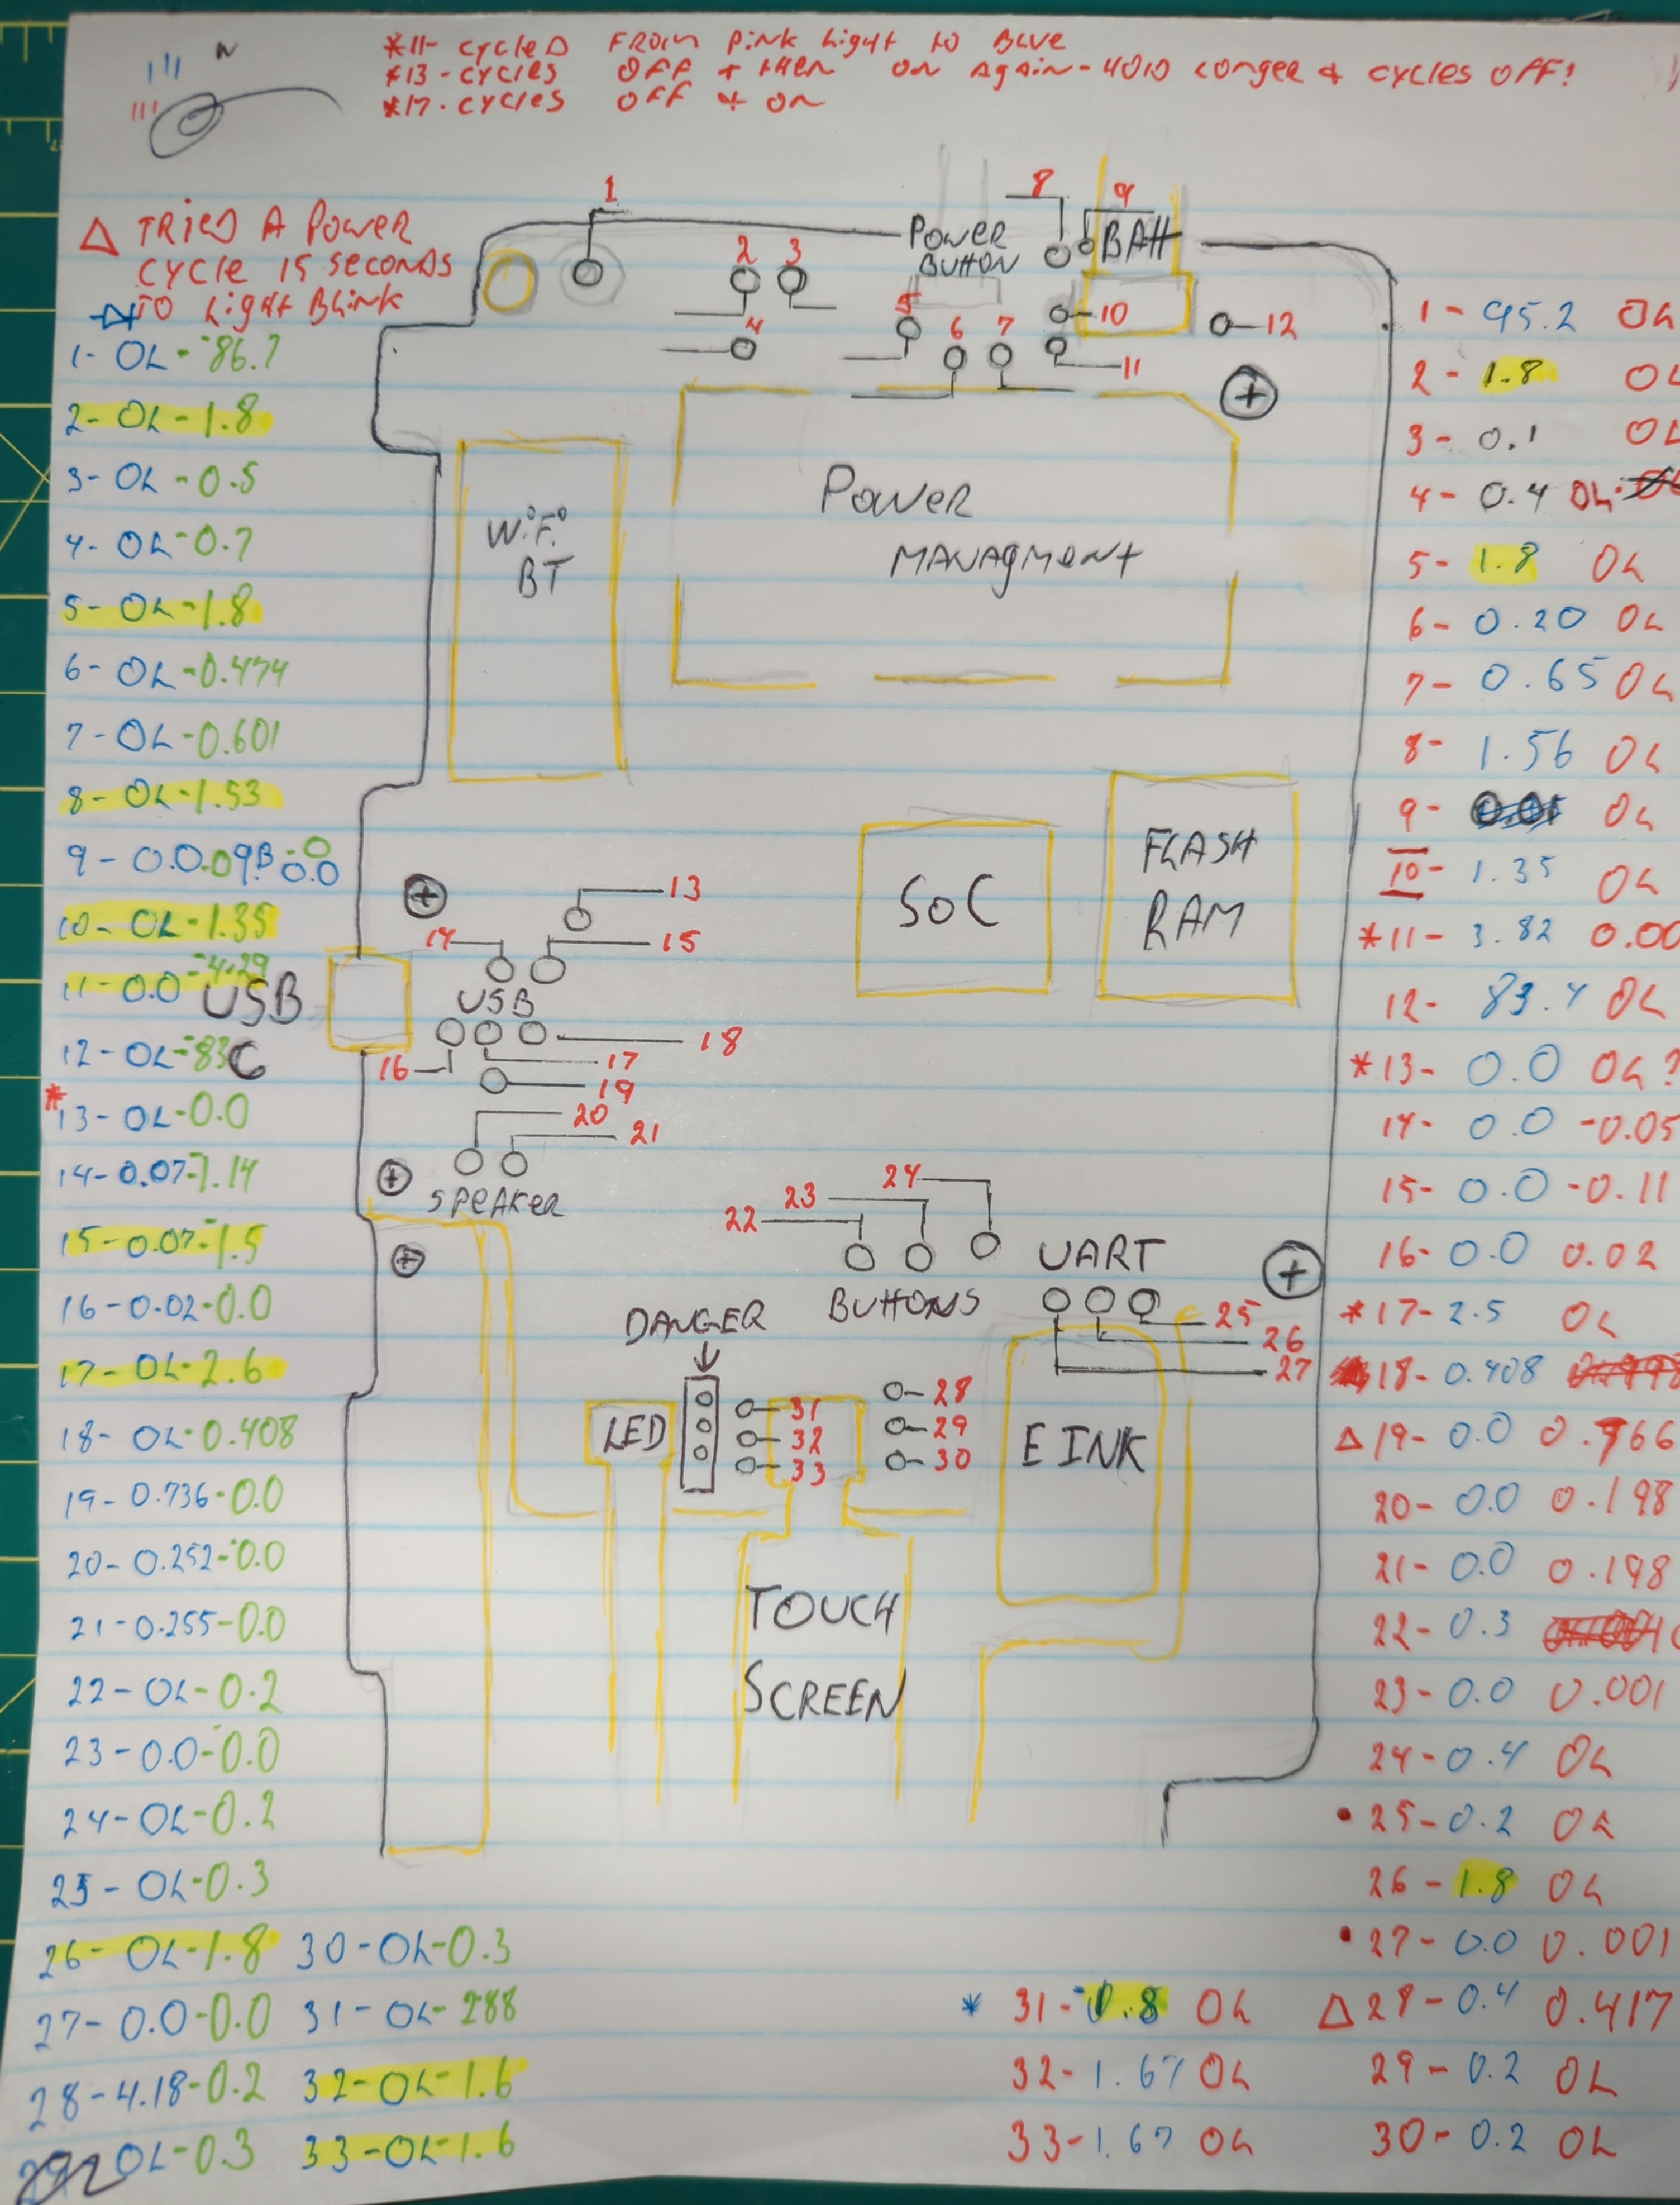 *11- cycled From Pink Light to Blue
*13-cycles OFF + then on again-40is longer & cycles OFF?
*17-cycles OFF & on
Δ TRIED A POWER
CYCLE 15 SECONDS
TO Light Blink
1- OL - -86.7
2- OL - 1.8
3- OL - 0.5
4- OL - 0.7
5- OL - 1.8
6- OL - 0.474
7- OL - 0.601
8- OL - 1.53
9 - 0.0
10- OL - 1.35
11- 0.0 - 4.29
12- OL - -83
*13- OL - 0.0
14- 0.07 - 1.14
15- 0.07 - 1.5
16- 0.02 - 0.0
17- OL - 2.6
18- OL - 0.408
19- 0.736 - 0.0
20- 0.252 - 0.0
21- 0.255 - 0.0
22- OL - 0.2
23- 0.0 - 0.0
24- OL - 0.2
25- OL - 0.3
26- OL - 1.8
27- 0.0 - 0.0
28- 4.18 - 0.2
OL - 0.3
30- OL - 0.3
31- OL - 288
32- OL - 1.6
33- OL - 1.6
1
2 3
4
POWER
BUTTON
8 9
BATT
5 6 7
10
11
12
WiFi
BT
POWER
MANAGMENT
SoC
FLASH
RAM
USB
C
13
14 15
USB
16 17 18
19
20
21
SPEAKER
22 23 24
BUTTONS
UART
25
26
27
DANGER
LED
31
32
33
28
29
30
E INK
TOUCH
SCREEN
1 - 95.2 OL
2 - 1.8 OL
3 - 0.1 OL
4 - 0.4 OL
5 - 1.8 OL
6 - 0.20 OL
7 - 0.65 OL
8 - 1.56 OL
9 - OL
10 - 1.35 OL
*11 - 3.82 0.00
12- 83.4 OL
*13- 0.0 OL?
14- 0.0 -0.05
15- 0.0 -0.11
16- 0.0 0.02
*17- 2.5 OL
18- 0.408
Δ 19- 0.0
20- 0.0 0.198
21- 0.0 0.198
22- 0.3
23- 0.0 0.001
24- 0.4 OL
• 25- 0.2 OL
26 - 1.8 OL
• 27- 0.0 0.001
Δ 28- 0.4 0.417
29- 0.2 OL
30- 0.2 OL
* 31- OL
32- 1.67 OL
33- 1.67 OL